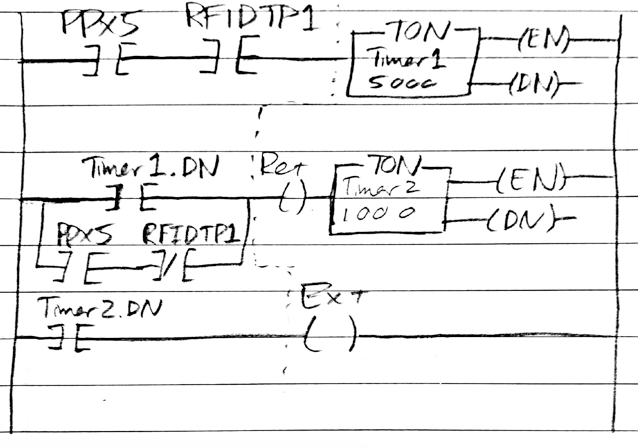 PPx5 RFIDTP1
TON (EN)
Timer 1
5000 (DN)
Timer 1.DN Ret TON (EN)
Timer 2
1000 (DN)
PPx5 RFIDTP1
Timer 2.DN Ext